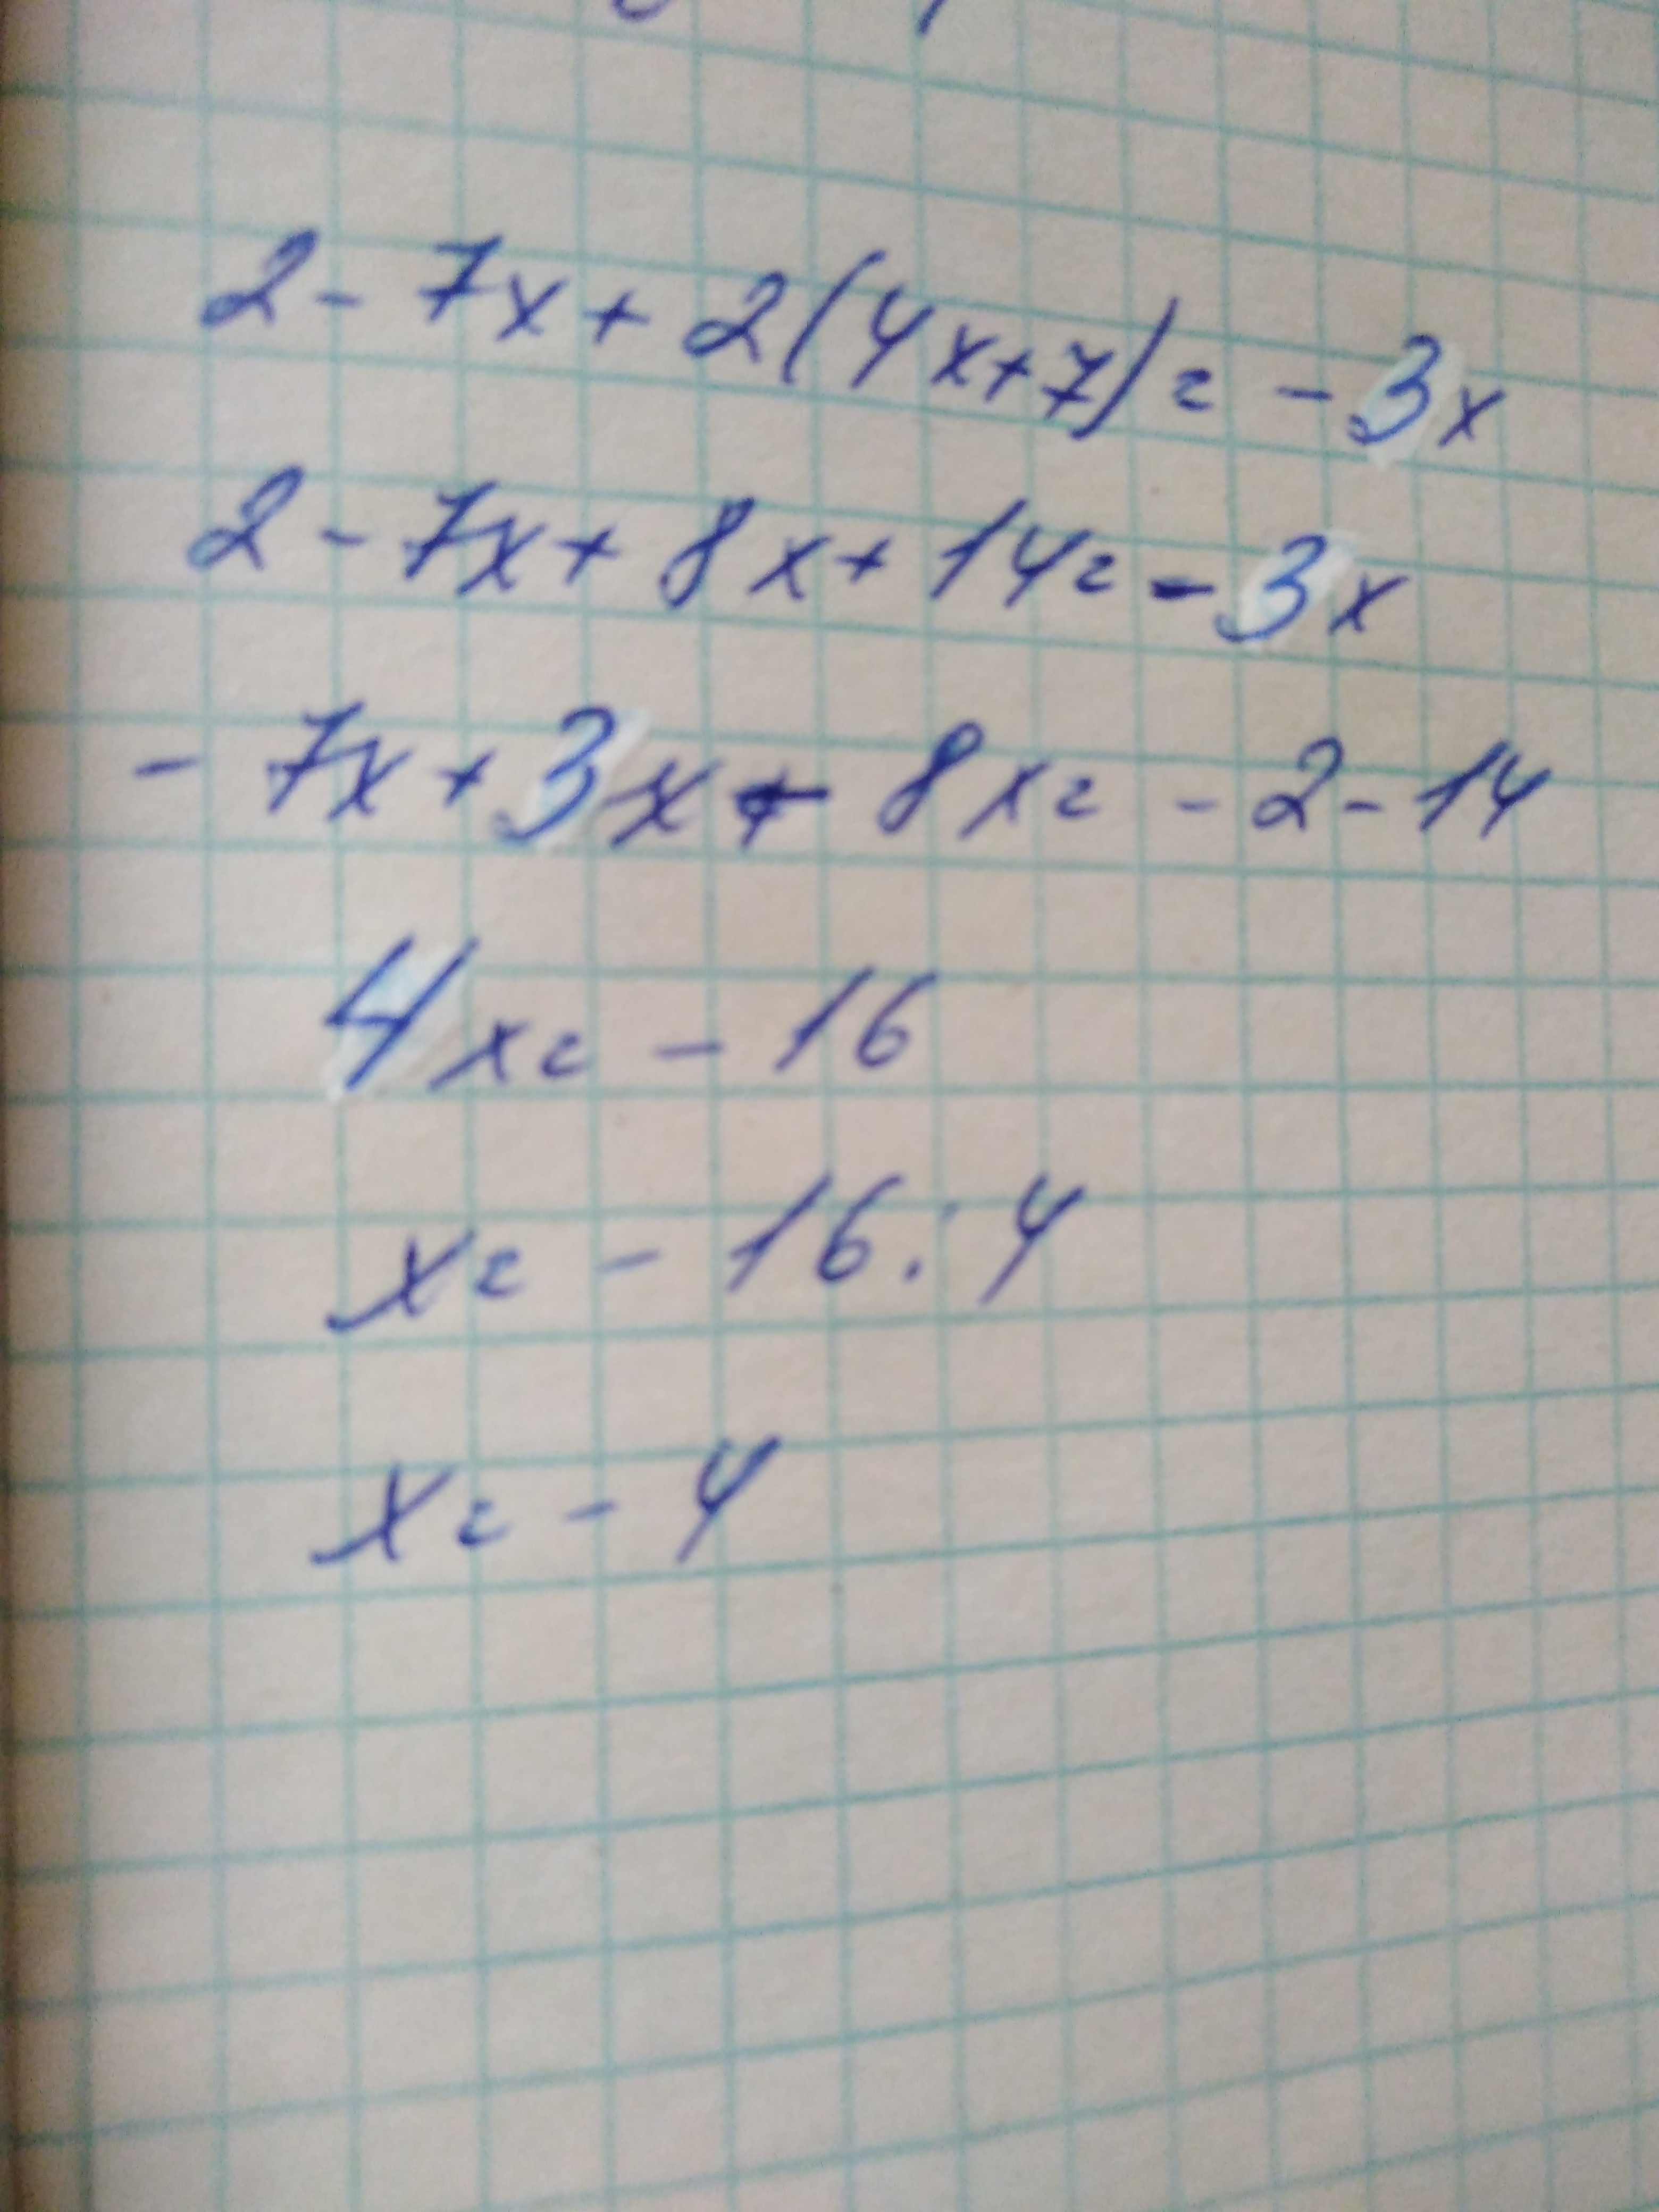 2 - 7x + 2(4x+7) = - 3x
2 - 7x + 8x + 14 = - 3x
- 7x + 3x + 8x = - 2 - 14
4x = - 16
x = - 16 : 4
x = - 4